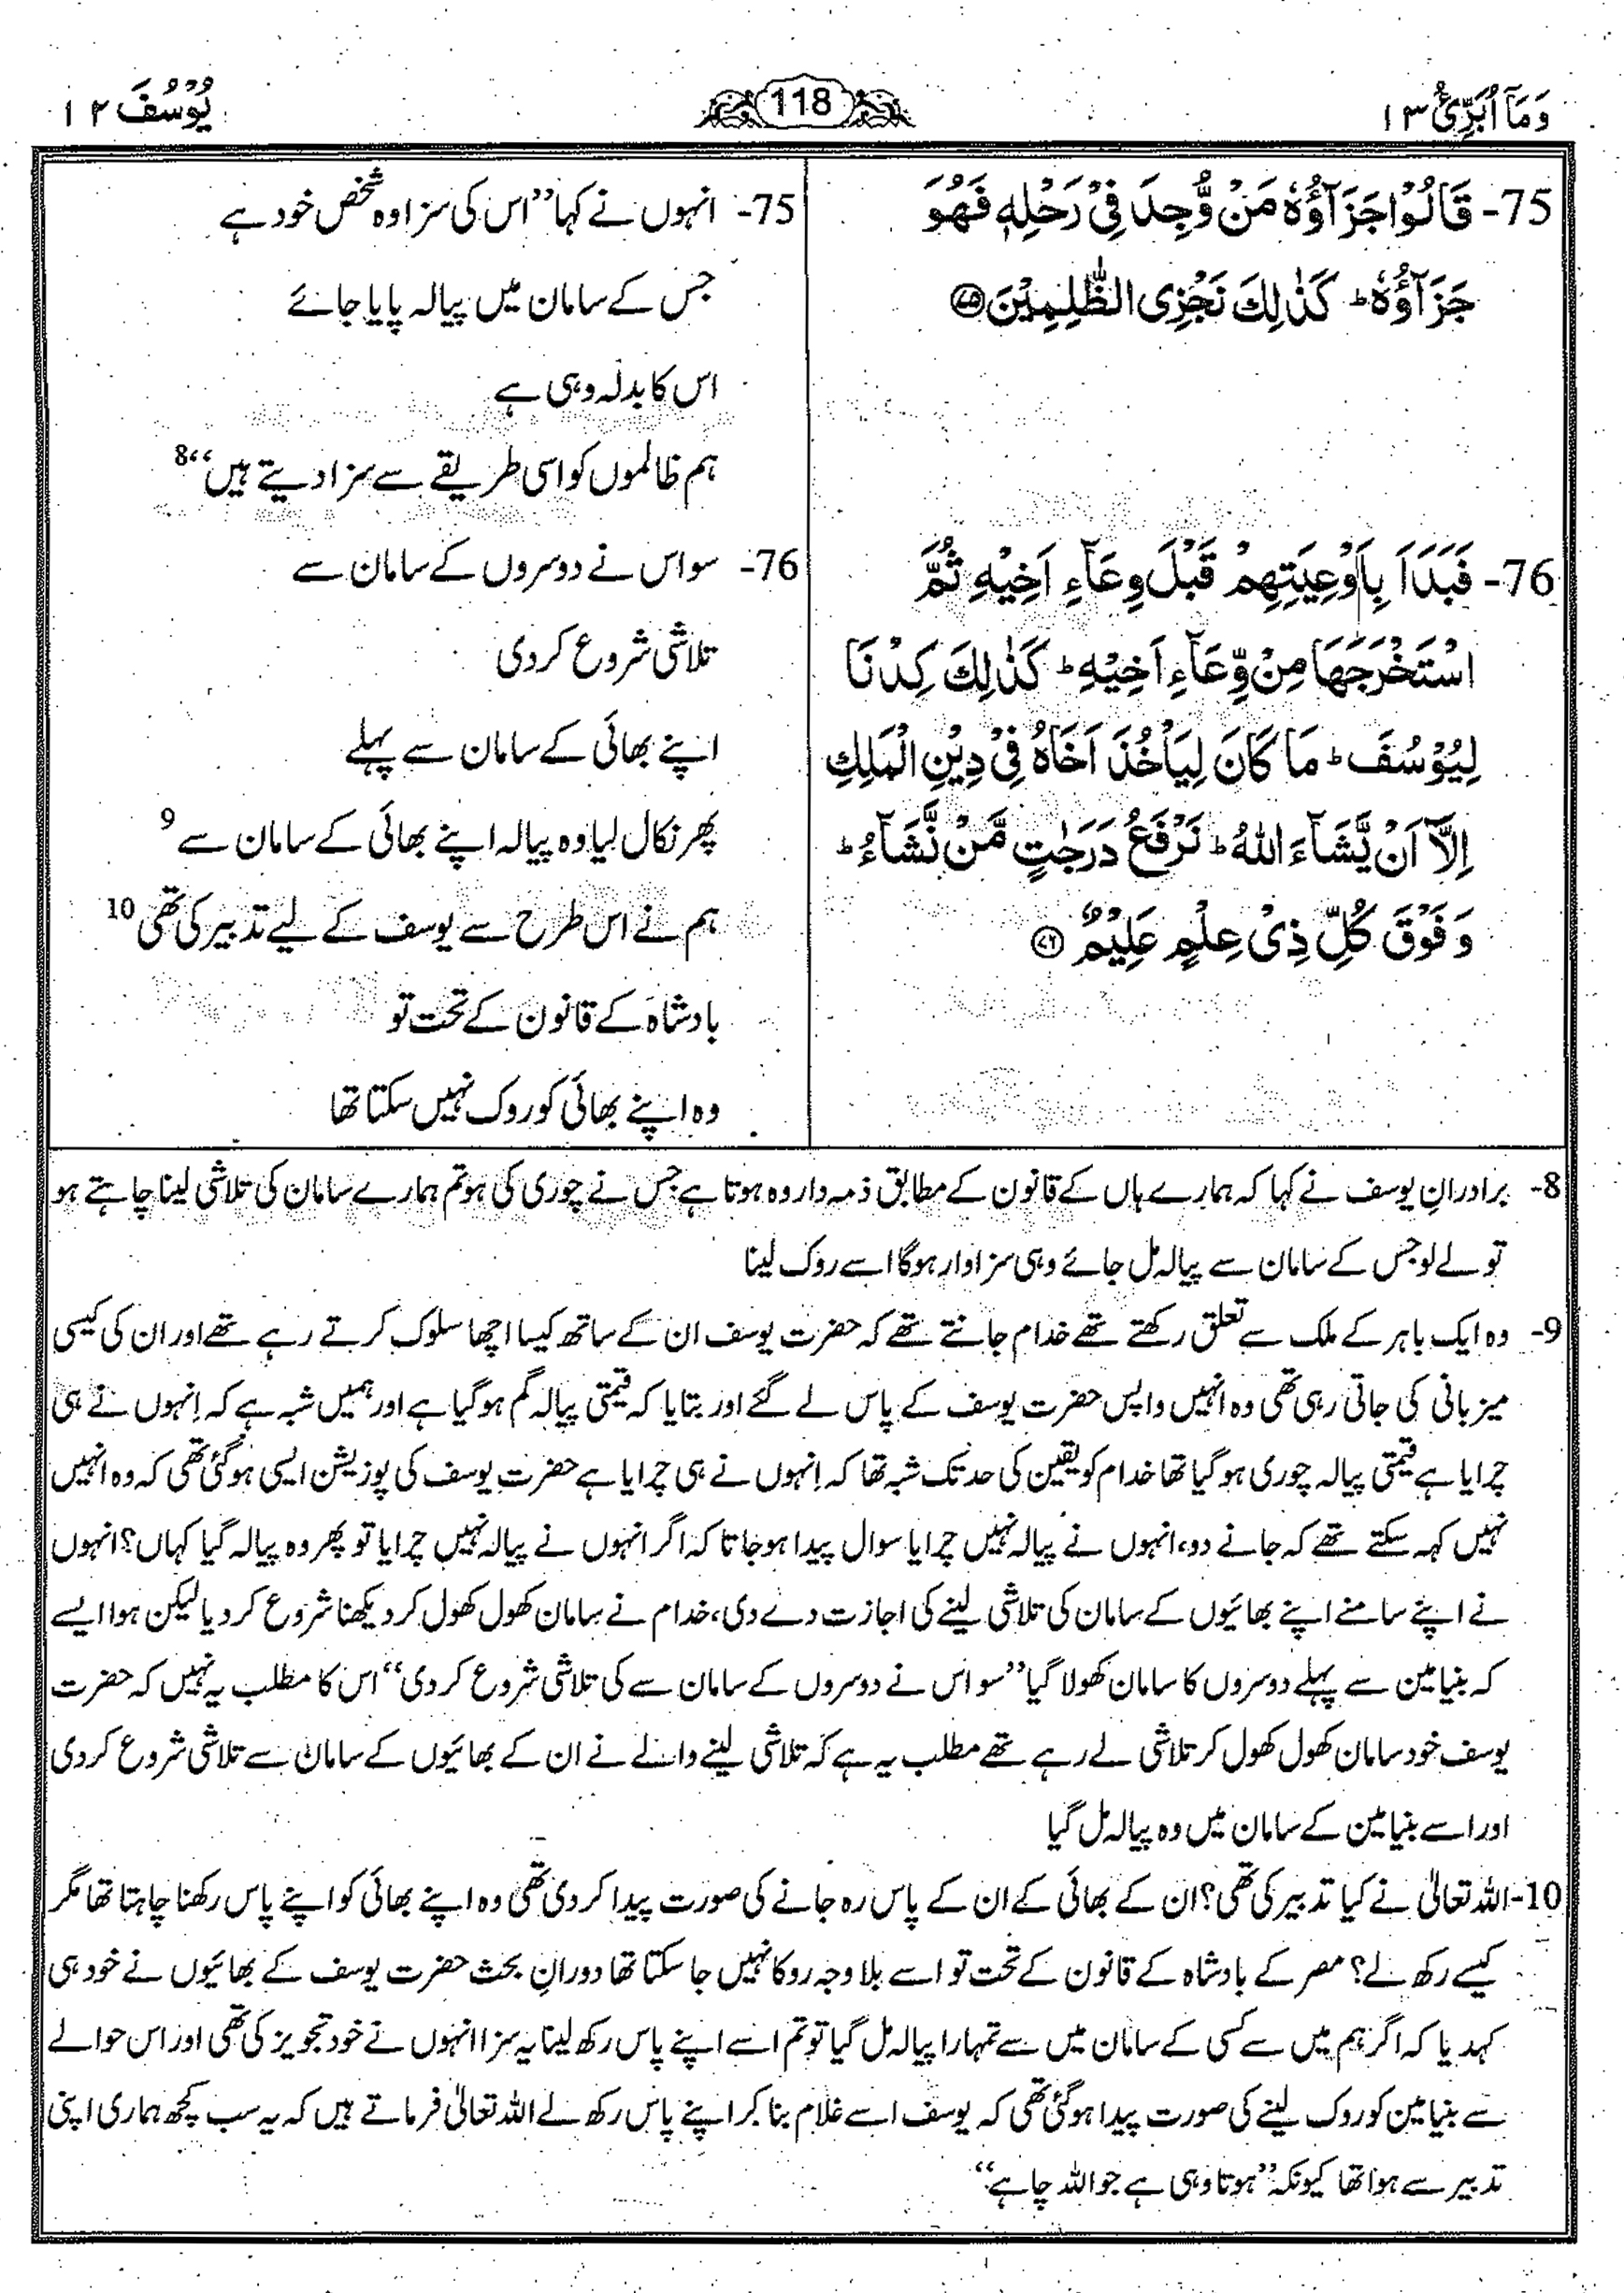 وَمَآ اُبَرِّئُ ١٣
118
یُوْسُفَ ١٢
75- قَالُوْا جَزَآؤُهٗ مَنْ وُّجِدَ فِیْ رَحْلِهٖ فَهُوَ
جَزَآؤُهٗ ؕ كَذٰلِكَ نَجْزِی الظّٰلِمِیْنَ ﴿۷۵﴾
76- فَبَدَاَ بِاَوْعِیَتِهِمْ قَبْلَ وِعَآءِ اَخِیْهِ ثُمَّ
اسْتَخْرَجَهَا مِنْ وِّعَآءِ اَخِیْهِ ؕ كَذٰلِكَ كِدْنَا
لِیُوْسُفَ ؕ مَا كَانَ لِیَاْخُذَ اَخَاهُ فِیْ دِیْنِ الْمَلِكِ
اِلَّاۤ اَنْ یَّشَآءَ اللهُ ؕ نَرْفَعُ دَرَجٰتٍ مَّنْ نَّشَآءُ ؕ
وَ فَوْقَ كُلِّ ذِیْ عِلْمٍ عَلِیْمٌ ﴿۷۶﴾
75- انہوں نے کہا ’’اس کی سزا وہ شخص خود ہے
جس کے سامان میں پیالہ پایا جائے
اس کا بدلہ وہی ہے
ہم ظالموں کو اسی طریقے سے سزا دیتے ہیں‘‘ 8
76- سو اس نے دوسروں کے سامان سے
تلاشی شروع کر دی
اپنے بھائی کے سامان سے پہلے
پھر نکال لیا وہ پیالہ اپنے بھائی کے سامان سے 9
ہم نے اس طرح سے یوسف کے لیے تدبیر کی تھی 10
بادشاہ کے قانون کے تحت تو
وہ اپنے بھائی کو روک نہیں سکتا تھا
8- برادرانِ یوسف نے کہا کہ ہمارے ہاں کے قانون کے مطابق ذمہ دار وہ ہوتا ہے جس نے چوری کی ہو تم ہمارے سامان کی تلاشی لینا چاہتے ہو
تو لے لو جس کے سامان سے پیالہ مل جائے وہی سزاوار ہوگا اسے روک لینا
9- وہ ایک باہر کے ملک سے تعلق رکھتے تھے خدام جانتے تھے کہ حضرت یوسف ان کے ساتھ کیسا اچھا سلوک کرتے رہے تھے اور ان کی کیسی
میزبانی کی جاتی رہی تھی وہ انہیں واپس حضرت یوسف کے پاس لے گئے اور بتایا کہ قیمتی پیالہ گم ہو گیا ہے اور ہمیں شبہ ہے کہ اِنہوں نے ہی
چرایا ہے قیمتی پیالہ چوری ہو گیا تھا خدام کو یقین کی حد تک شبہ تھا کہ اِنہوں نے ہی چرایا ہے حضرت یوسف کی پوزیشن ایسی ہو گئی تھی کہ وہ انہیں
نہیں کہہ سکتے تھے کہ جانے دو، انہوں نے پیالہ نہیں چرایا سوال پیدا ہو جاتا کہ اگر انہوں نے پیالہ نہیں چرایا تو پھر وہ پیالہ گیا کہاں؟ انہوں
نے اپنے سامنے اپنے بھائیوں کے سامان کی تلاشی لینے کی اجازت دے دی، خدام نے سامان کھول کھول کر دیکھنا شروع کر دیا لیکن ہوا ایسے
کہ بنیامین سے پہلے دوسروں کا سامان کھولا گیا ’’سو اس نے دوسروں کے سامان سے کی تلاشی شروع کر دی‘‘ اس کا مطلب یہ نہیں کہ حضرت
یوسف خود سامان کھول کھول کر تلاشی لے رہے تھے مطلب یہ ہے کہ تلاشی لینے والے نے ان کے بھائیوں کے سامان سے تلاشی شروع کر دی
اور اسے بنیامین کے سامان میں وہ پیالہ مل گیا
10- اللہ تعالیٰ نے کیا تدبیر کی تھی؟ ان کے بھائی کے ان کے پاس رہ جانے کی صورت پیدا کر دی تھی وہ اپنے بھائی کو اپنے پاس رکھنا چاہتا تھا مگر
کیسے رکھ لے؟ مصر کے بادشاہ کے قانون کے تحت تو اسے بلا وجہ روکا نہیں جا سکتا تھا دورانِ بحث حضرت یوسف کے بھائیوں نے خود ہی
کہدیا کہ اگر ہم میں سے کسی کے سامان میں سے تمہارا پیالہ مل گیا تو تم اسے اپنے پاس رکھ لینا یہ سزا انہوں نے خود تجویز کی تھی اور اس حوالے
سے بنیامین کو روک لینے کی صورت پیدا ہو گئی تھی کہ یوسف اسے غلام بنا کر اپنے پاس رکھ لے اللہ تعالیٰ فرماتے ہیں کہ یہ سب کچھ ہماری اپنی
تدبیر سے ہوا تھا کیونکہ ’’ہوتا وہی ہے جو اللہ چاہے‘‘